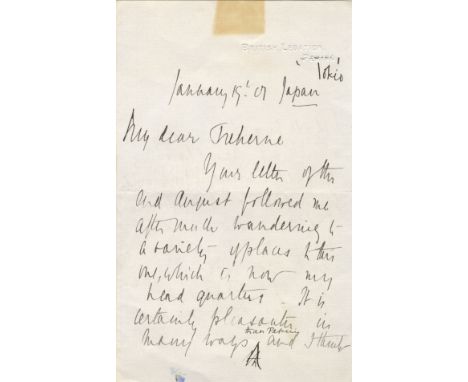 BRITISH LEGATION,
PEKING
'Tokio
January 19' 01 Japan
My dear Treherne
Your letter of the
2nd August followed me
after much wandering to
a variety of places to this
one, which is now my
head quarters. It is
certainly pleasanter in
than Peking
many ways and I think